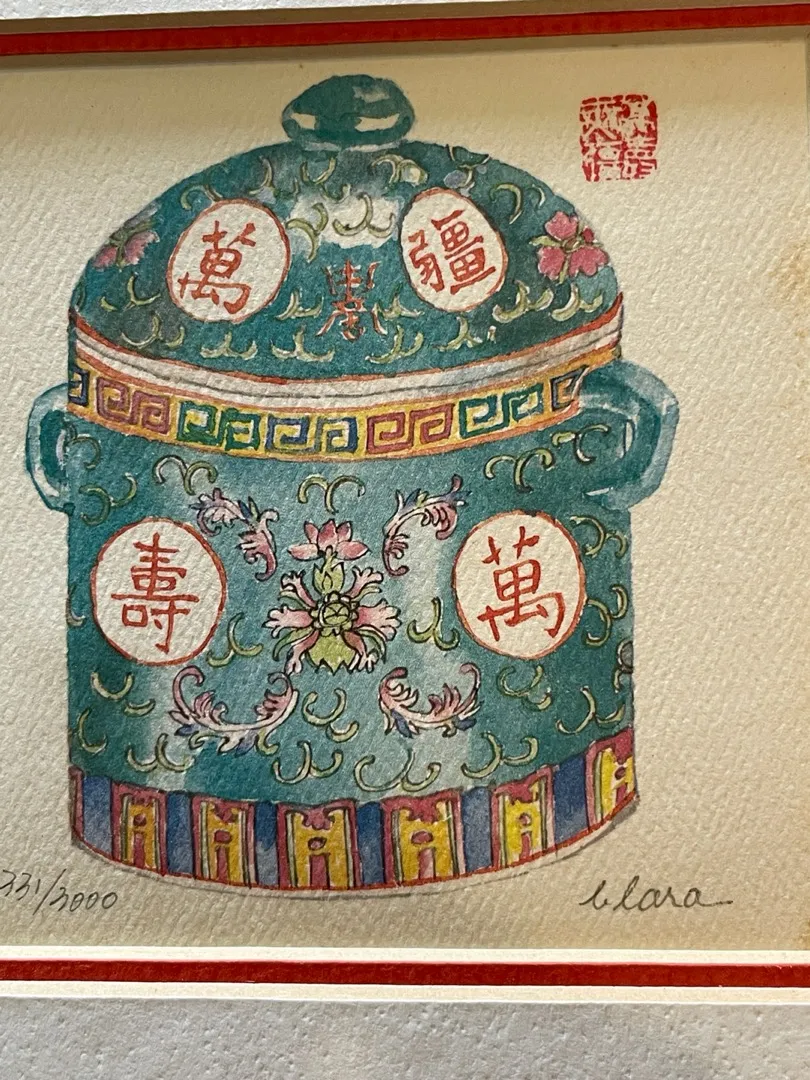 萬 疆
壽 萬
331/3000 Clara